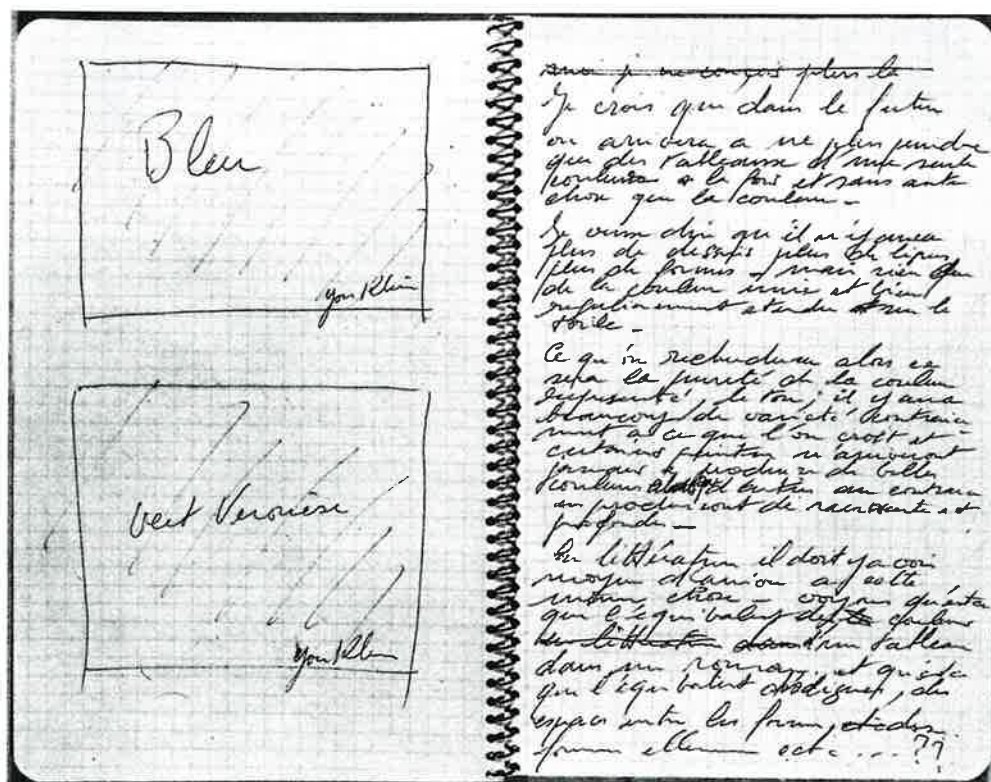 Bleu
Yves Klein
vert Veronèse
Yves Klein
je ne conçois plus la
Je crois que dans le futur
on arrivera a ne plus peindre
que des tableaux d'une seule
couleur a la fois et sans autre
chose que la couleur -
Je veux dire qu'il n'y aura
plus de dessins plus de lignes
plus de formes - mais rien que
de la couleur unie et bien
regulierement etendu sur la
toile -
Ce qu'on recherchera alors ce
sera la pureté de la couleur
representé, le ton, il y aura
beaucoup de varieté contraire
ment a ce que l'on croit et
certains peintres n'arriveront
jamais a produire de belles
couleurs d'autres au contraire
en produiront de et
profonde -
En littérature il doit y avoir
moyen d'arriver a cette
meme chose - voyons qu'est ce
que l'équivalent couleur
d'un tableau
dans un roman, et qu'est ce
que l'équivalent des lignes, des
espaces entre les formes, et des
formes elle meme ect - ... ??